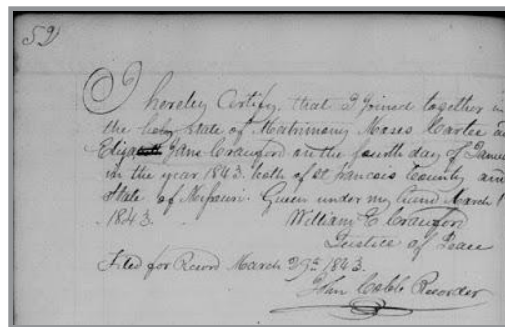 59
I hereby Certify, that I joined together in
the holy State of Matrimony Moses Cartee
Eliza Jane Crawford on the fourth day of
in the year 1843. both of St Francois County and
State of Missouri. Given under my hand March
1843. William C. Crawford
Justice of Peace
Filed for Record March 29th 1843.
John Cobb Recorder